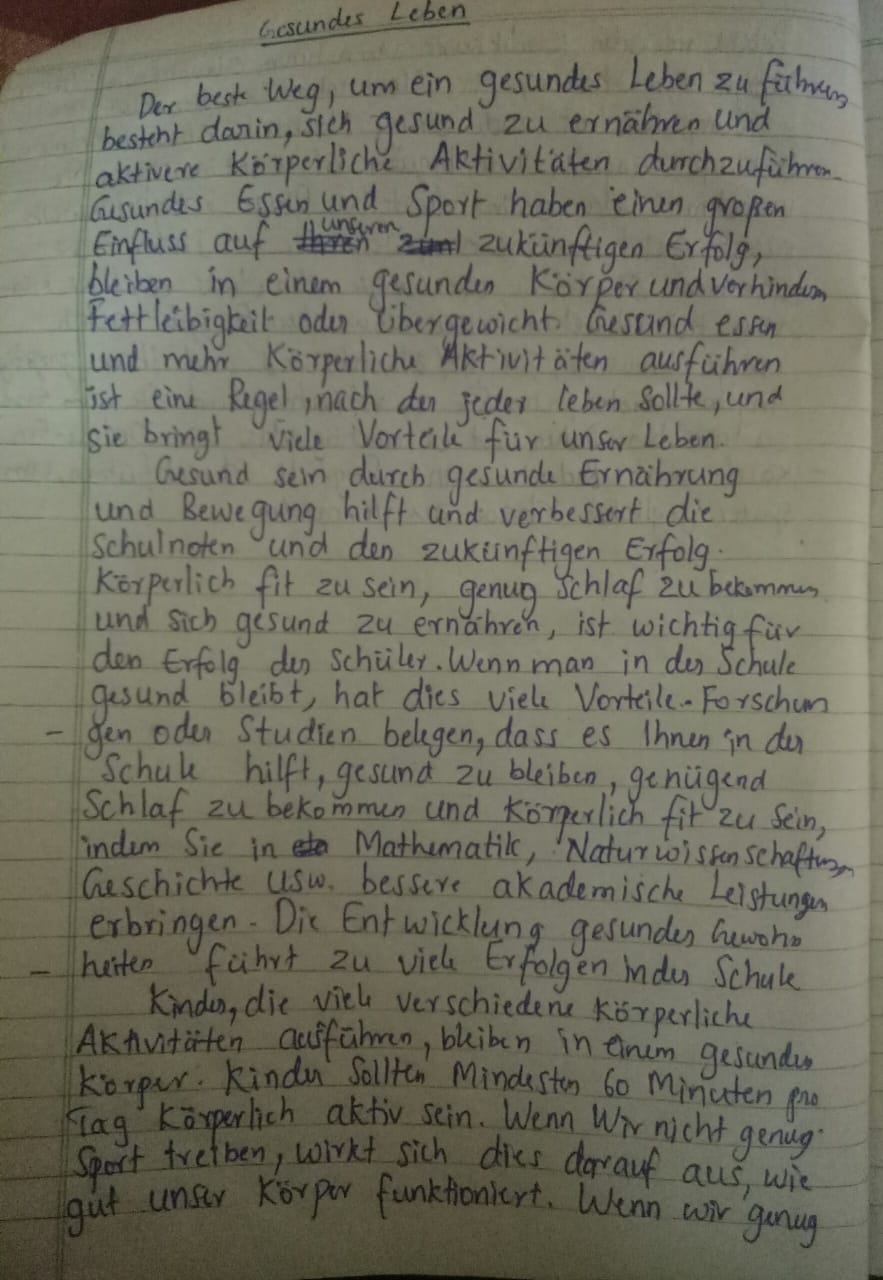 Gesundes Leben
Der beste Weg, um ein gesundes Leben zu führen,
besteht darin, sich gesund zu ernähren und
aktivere Körperliche Aktivitäten durchzuführen.
Gesundes Essen und Sport haben einen großen
Einfluss auf unseren zukünftigen Erfolg,
bleiben in einem gesunden Körper und verhindern
Fettleibigkeit oder Übergewicht. Gesund essen
und mehr Körperliche Aktivitäten ausführen
ist eine Regel, nach der jeder leben sollte, und
sie bringt viele Vorteile für unser Leben.
Gesund sein durch gesunde Ernährung
und Bewegung hilft und verbessert die
Schulnoten und den zukünftigen Erfolg.
Körperlich fit zu sein, genug Schlaf zu bekommen
und sich gesund zu ernähren, ist wichtig für
den Erfolg der Schüler. Wenn man in der Schule
gesund bleibt, hat dies viele Vorteile. Forschun
- gen oder Studien belegen, dass es Ihnen in der
Schule hilft, gesund zu bleiben, genügend
Schlaf zu bekommen und Körperlich fit zu sein,
indem Sie in Mathematik, Naturwissenschaften,
Geschichte usw. bessere akademische Leistungen
erbringen. Die Entwicklung gesunder Gewohn
- heiten führt zu viele Erfolgen in der Schule
Kinder, die viele verschiedene Körperliche
Aktivitäten ausführen, bleiben in einem gesunden
Körper. Kinder sollten Mindesten 60 Minuten pro
Tag Körperlich aktiv sein. Wenn Wir nicht genug
Sport treiben, wirkt sich dies darauf aus, wie
gut unser Körper funktioniert. Wenn wir genug